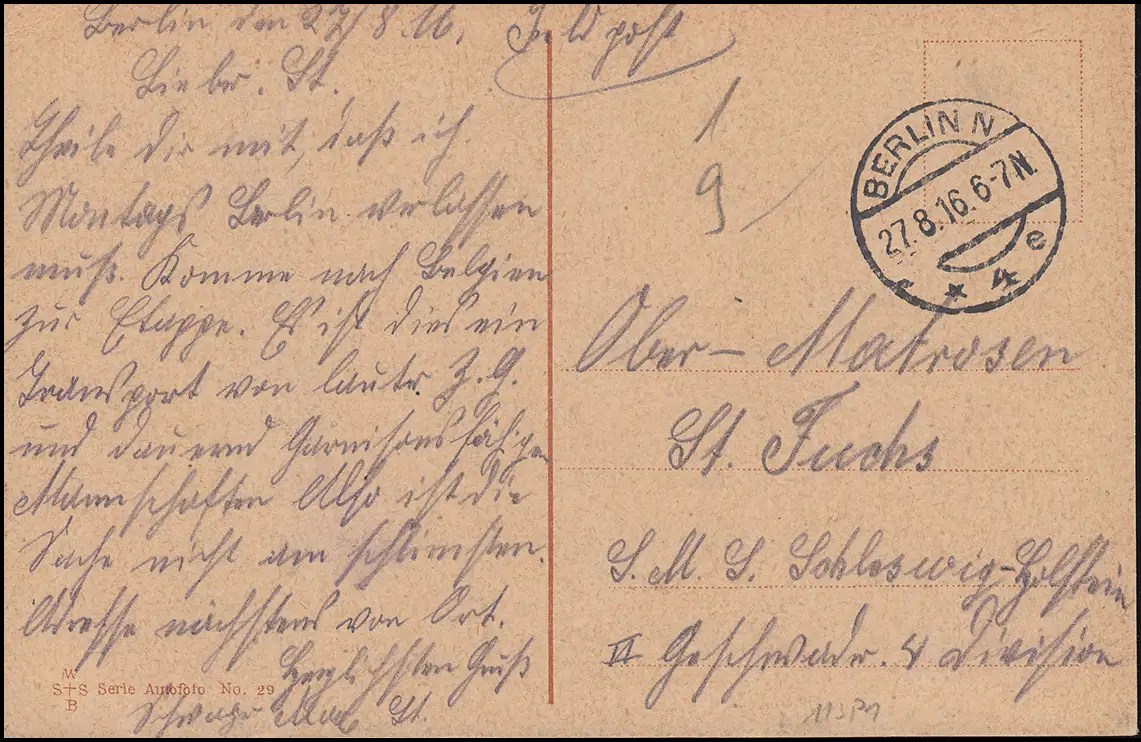 Berlin den 27/8.16. Feldpost
Lieber. St.
Theile dir mit, daß ich
Montags Berlin verlassen
muß. Komme nach Belgien
zur Etappe. Es ist dies ein
Transport von lauter Z.G.
und dauernd Garnisonsfähigen
Mannschaften Also ist die
Sache nicht am schlimsten.
Adresse nächstens von Ort.
Herzlichsten Gruß
Schwager Max St.
W
S+S Serie Autofoto No. 29
B
1
9
BERLIN N
27.8.16.6-7N.
* 4 e
Ober-Matrosen
St. Fuchs
S. M. S. Schleswig-Holstein
II Geschwader. 4 Division